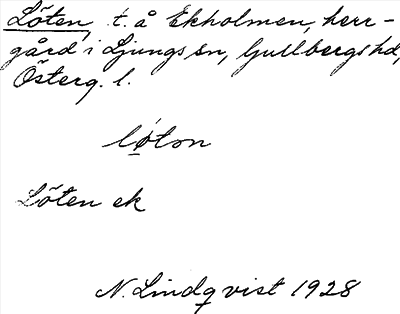 Löten, t. å Ekholmen, herr-
gård i Ljungs sn, Gullbergs hd,
Österg. l.
løton
Löten ek
N. Lindqvist 1928